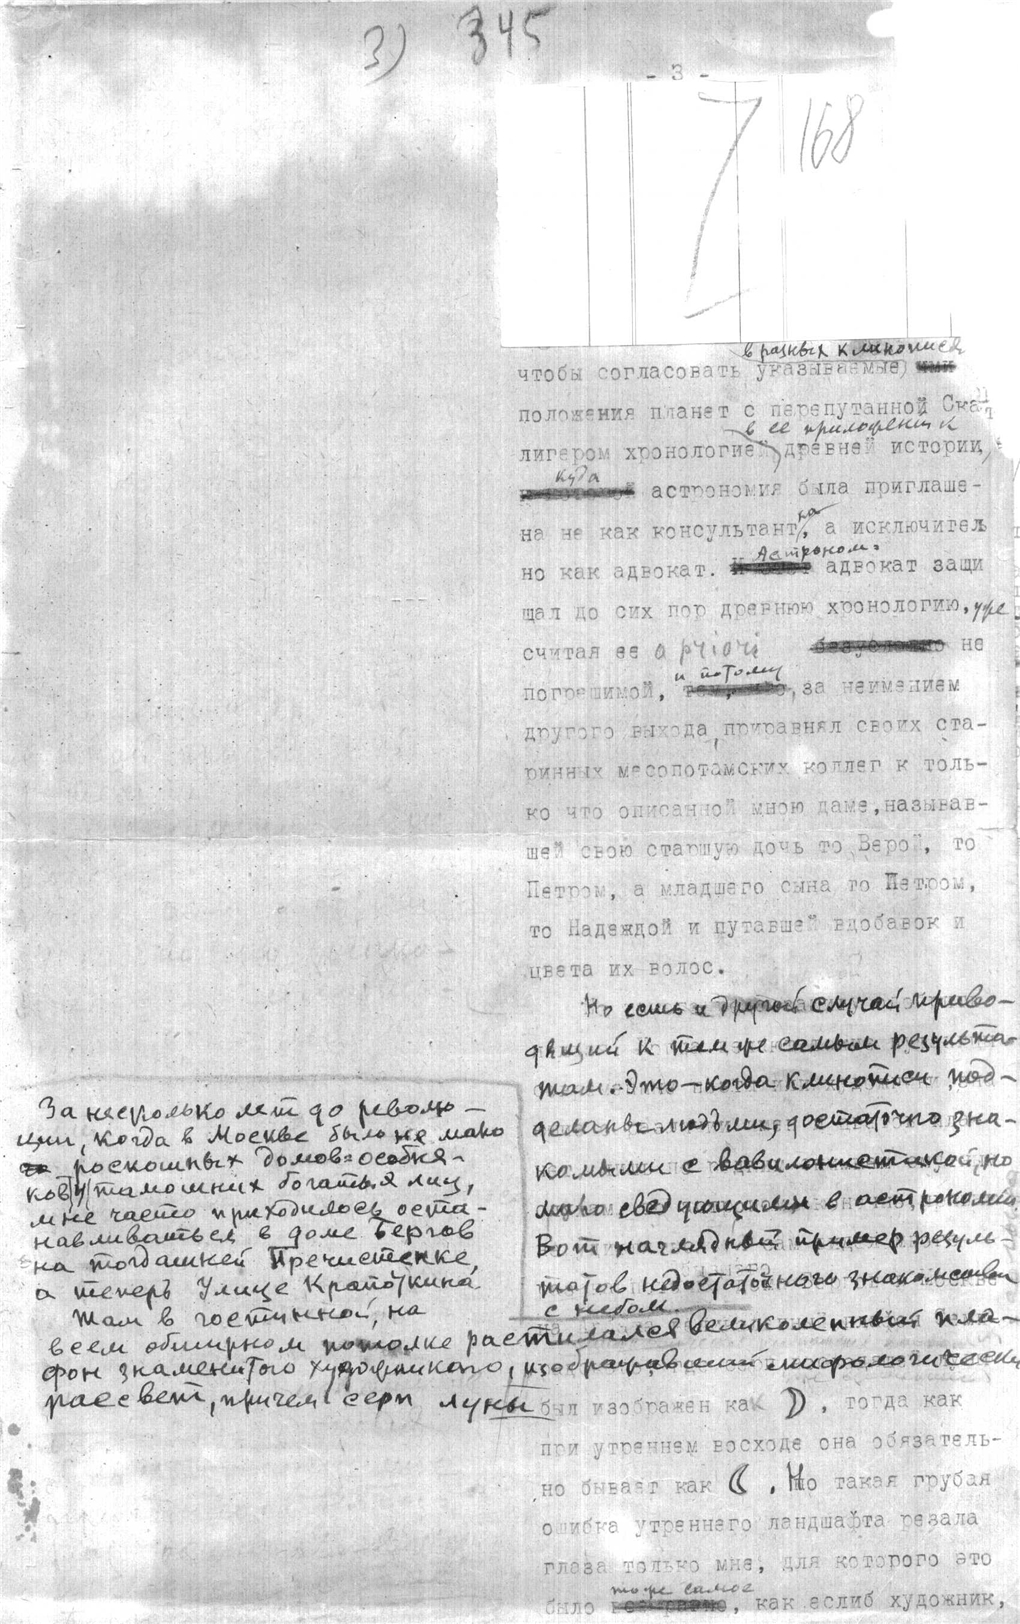 3) 345
- 3 -
168
в разных клинописях
чтобы согласовать указываемые ими
положения планет с перепутанной Ска-
в ее приложении к
лигером хронологией древней истории,
куда
астрономия была приглаше-
на не как консультант, а исключитель
Астроном-
но как адвокат. адвокат защи
щал до сих пор древнюю хронологию, уже
считая ее a priori безусловно не
и потому
погрешимой, тем, что, за неимением
другого выхода, приравнял своих ста-
ринных месопотамских коллег к толь-
ко что описанной мною даме, называв-
шей свою старшую дочь то Верой, то
Петром, а младшего сына то Петром,
то Надеждой и путавшей вдобавок и
цвета их волос.
Но есть и другой случай приво-
дящий к тем же самым результа-
там. Это – когда клинописи под-
деланы людьми, достаточно зна-
комыми с вавилонистикой, но
мало сведующими в астрономии.
Вот наглядный пример резуль-
татов недостаточного знакомства
с небом.
За несколько лет до револю-
ции, когда в Москве было не мало
роскошных домов-особня-
ков у тамошних богатых лиц,
мне часто приходилось оста-
навливаться в доме Бергов
на тогдашней Пречистенке,
а теперь Улице Крапоткина
Там в гостинной, на
всем обширном потолке растилался великолепный пла-
фон знаменитого художника, изображавший мифологически
рассвет, причем серп луны
был изображен как ☽, тогда как
при утреннем восходе она обязатель-
но бывает как ☾. Но такая грубая
ошибка утреннего ландшафта резала
глаза только мне, для которого это
то же самое
было, как еслиб художник,